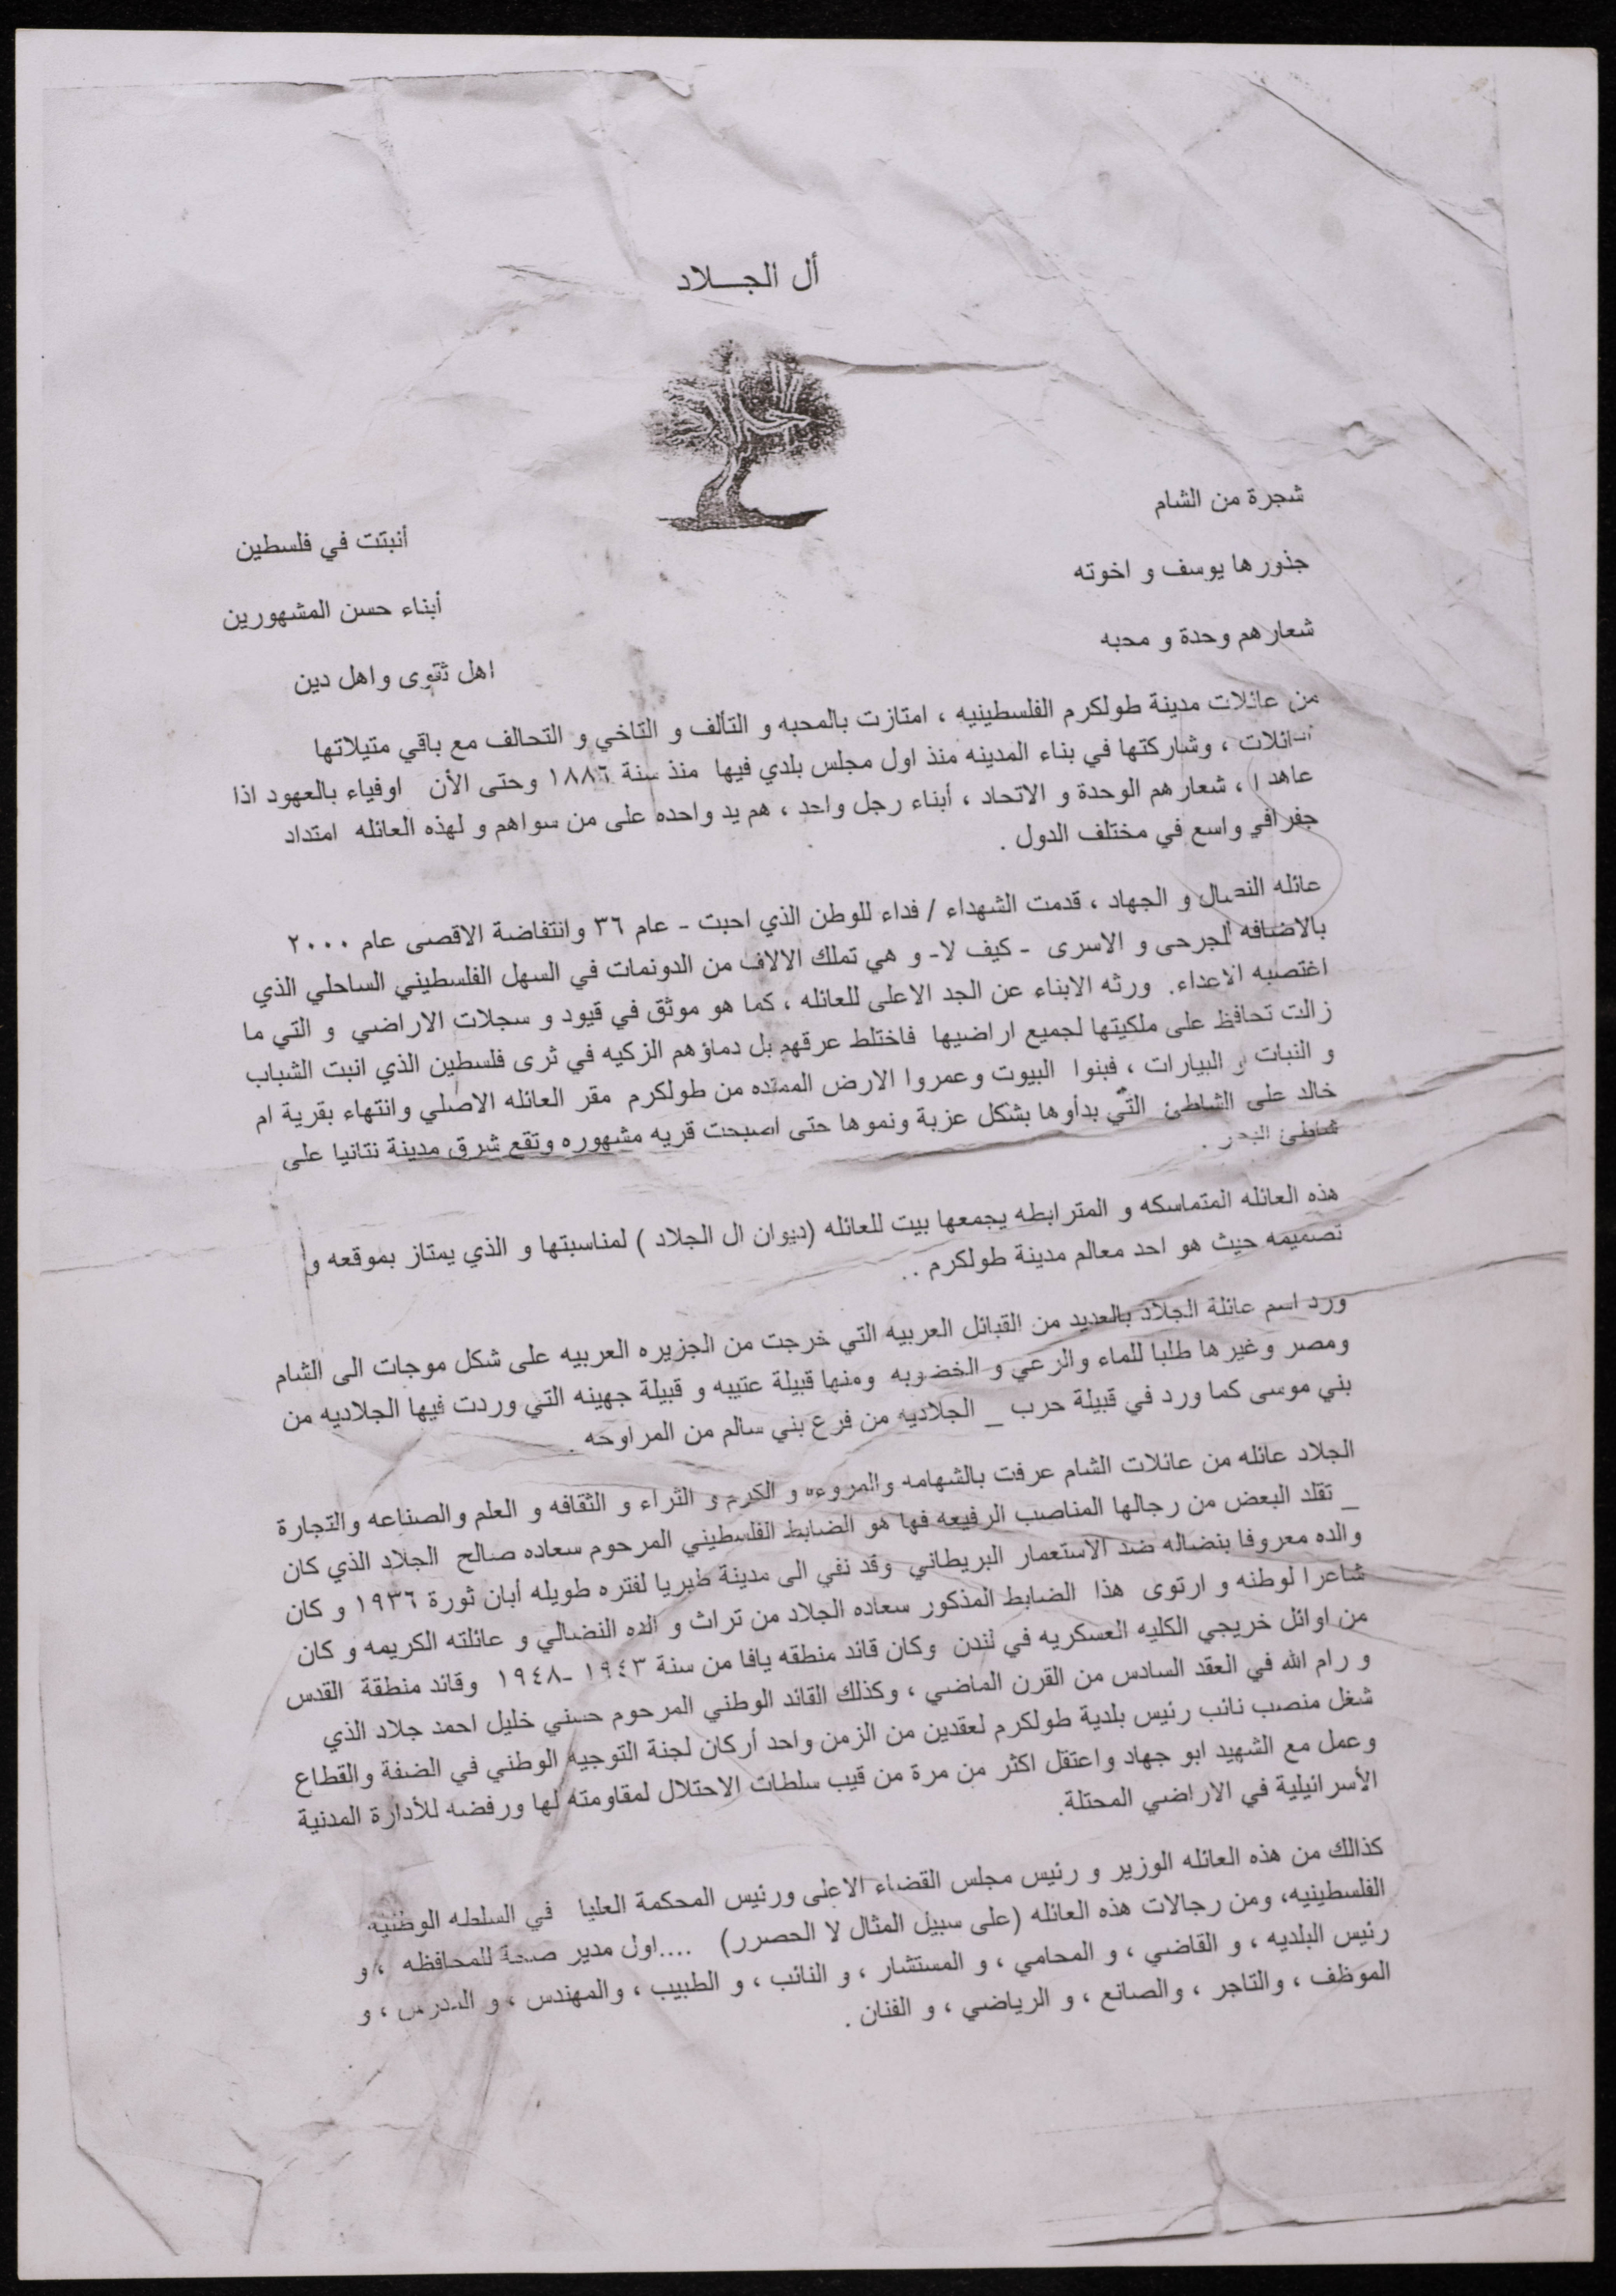 أل الجـــلاد
جلاد
شجرة من الشام أنبتت في فلسطين
جذورها يوسف و اخوته أبناء حسن المشهورين
شعارهم وحدة و محبه اهل تقوى واهل دين
من عائلات مدينة طولكرم الفلسطينيه ، امتازت بالمحبه و التألف و التاخي و التحالف مع باقي متيلاتها
، وشاركتها في بناء المدينه منذ اول مجلس بلدي فيها منذ سنة ١٨٨٦ وحتى الأن اوفياء بالعهود اذا
عاهدا ، شعارهم الوحدة و الاتحاد ، أبناء رجل واحد ، هم يد واحده على من سواهم و لهذه العائله امتداد
جغرافي واسع في مختلف الدول .
عائله النضال و الجهاد ، قدمت الشهداء / فداء للوطن الذي احبت - عام ٣٦ وانتفاضة الاقصى عام ٢٠٠٠
بالاضافه لجرحى و الاسرى - كيف لا- و هي تملك الالاف من الدونمات في السهل الفلسطيني الساحلي الذي
اغتصبه الاعداء. ورثه الابناء عن الجد الاعلى للعائله ، كما هو موثق في قيود و سجلات الاراضي و التي ما
زالت تحافظ على ملكيتها لجميع اراضيها فاختلط عرقهم بل دماؤهم الزكيه في ثرى فلسطين الذي انبت الشباب
و النبات و البيارات ، فبنوا البيوت وعمروا الارض الممتده من طولكرم مقر العائله الاصلي وانتهاء بقرية ام
خالد على الشاطئ التي بدأوها بشكل عزبة ونموها حتى اصبحت قريه مشهوره وتقع شرق مدينة نتانيا على
شاطئ البحر .
هذه العائله المتماسكه و المترابطه يجمعها بيت للعائله (ديوان ال الجلاد ) لمناسبتها و الذي يمتاز بموقعه و
تصميمه حيث هو احد معالم مدينة طولكرم ..
ورد اسم عائلة الجلاد بالعديد من القبائل العربيه التي خرجت من الجزيره العربيه على شكل موجات الى الشام
ومصر وغيرها طلبا للماء والرعي و الخضوبه ومنها قبيلة عتيبه و قبيلة جهينه التي وردت فيها الجلاديه من
بني موسى كما ورد في قبيلة حرب _ الجلاديه من فرع بني سالم من المراوحه .
الجلاد عائله من عائلات الشام عرفت بالشهامه والمروءه و الكرم و الثراء و الثقافه و العلم والصناعه والتجارة
_ تقلد البعض من رجالها المناصب الرفيعه فها هو الضابط الفلسطيني المرحوم سعاده صالح الجلاد الذي كان
والده معروفا بنضاله ضد الاستعمار البريطاني وقد نفي الى مدينة طبريا لفتره طويله أبان ثورة ١٩٣٦ و كان
شاعرا لوطنه و ارتوى هذا الضابط المذكور سعاده الجلاد من تراث و الده النضالي و عائلته الكريمه و كان
من اوائل خريجي الكليه العسكريه في لندن وكان قائد منطقه يافا من سنة ١٩٤٣ -١٩٤٨ وقائد منطقة القدس
و رام الله في العقد السادس من القرن الماضي ، وكذلك القائد الوطني المرحوم حسني خليل احمد جلاد الذي
شغل منصب نائب رئيس بلدية طولكرم لعقدين من الزمن واحد أركان لجنة التوجيه الوطني في الضفة والقطاع
وعمل مع الشهيد ابو جهاد واعتقل اكثر من مرة من قيب سلطات الاحتلال لمقاومته لها ورفضه للأدارة المدنية
الأسرائيلية في الاراضي المحتلة.
كذالك من هذه العائله الوزير و رئيس مجلس القضاء الاعلى ورئيس المحكمة العليا في السلطه الوطنيه
الفلسطينيه، ومن رجالات هذه العائله (على سبيل المثال لا الحصرر) ....اول مدير صحة للمحافظه ، و
رئيس البلديه ، و القاضي ، و المحامي ، و المستشار ، و النائب ، و الطبيب ، والمهندس ، و المدرس ، و
الموظف ، والتاجر ، والصانع ، و الرياضي ، و الفنان .